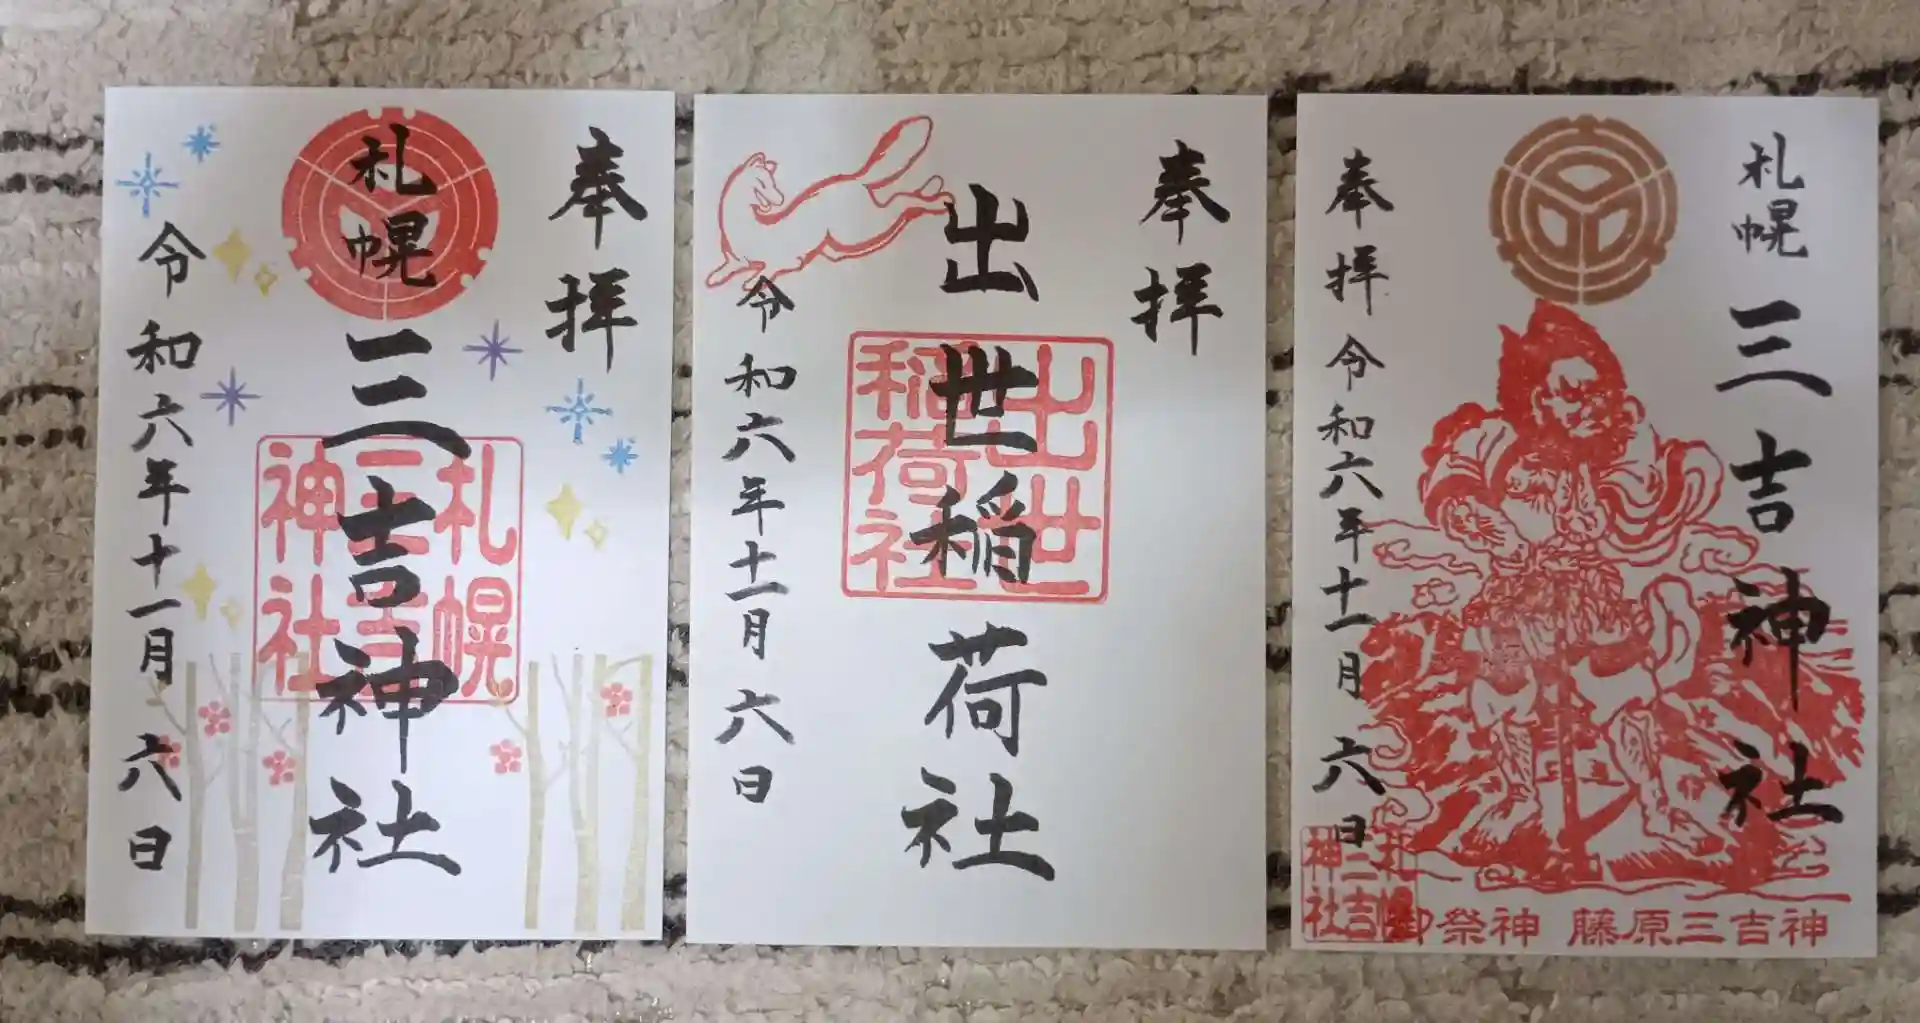 奉拝
札幌三吉神社
札幌三吉神社
令和六年十一月六日
奉拝
出世稲荷社
出世稲荷社
令和六年十一月六日
札幌三吉神社
奉拝令和六年十一月六日
札幌三吉神社
御祭神 藤原三吉神